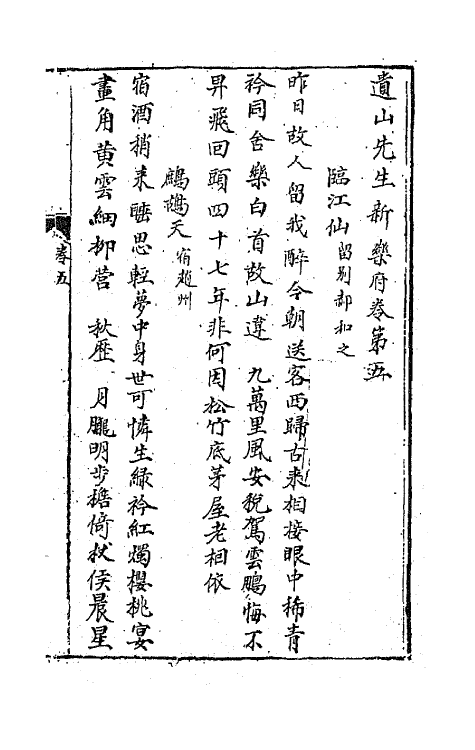 遺山先生新樂府卷第五
臨江仙 留别郝和之
昨日故人留我醉今朝送客西歸古來相接眼中稀青
衿同舍樂白首故山違 九萬里風安稅駕雲鵬悔不
卑飛回頭四十七年非何因松竹底茅屋老相依
鷓鴣天 宿趙州
宿酒稍來醺思輕夢中身世可憐生綠衿紅燭櫻桃宴
畫角黄雲細柳營 秋歷 月朧明步擔倚杖俟晨星
卷五